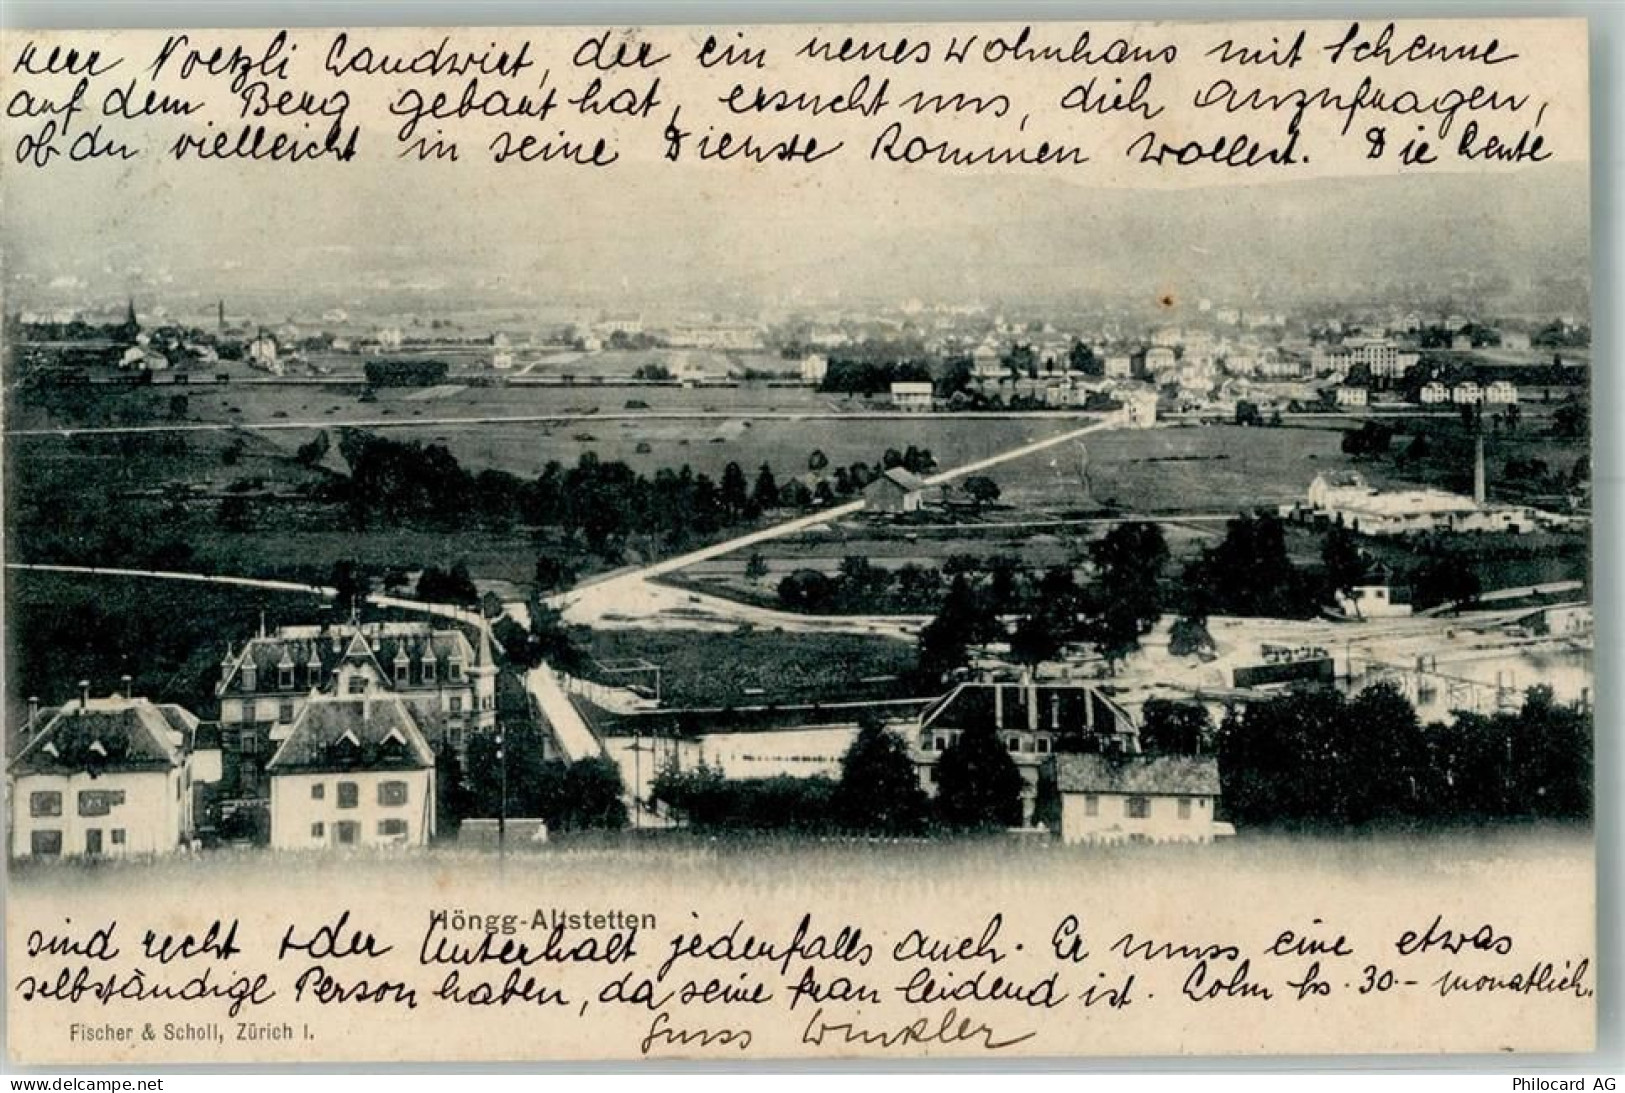 Herr Noetzli Landwirt, der ein neues Wohnhaus mit Scheune
auf dem Berg gebaut hat, ersucht uns, dich anzufragen,
ob du vielleicht in seine Dienste kommen wollest. Die Leute
Höngg-Altstetten
sind recht & der Unterhalt jedenfalls auch. Er muss eine etwas
selbständige Person haben, da seine Frau leidend ist. Lohn frs. 30.- monatlich.
Fischer & Scholl, Zürich I.
Gruss Winkler
www.delcampe.net
Philocard AG